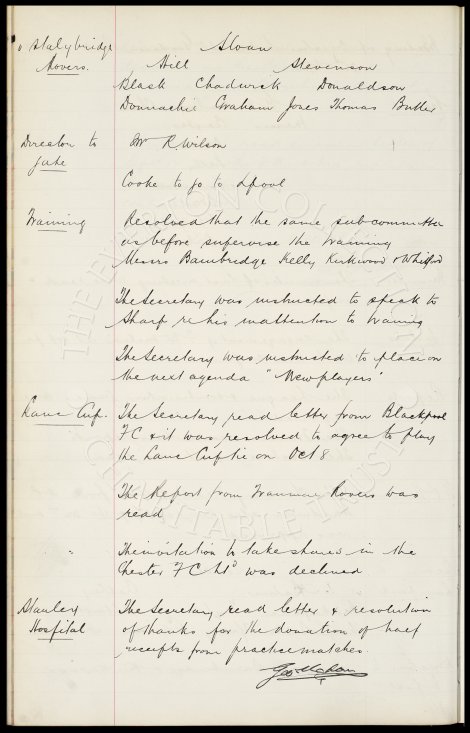 v Stalybridge Sloan
Rovers. Hill Stevenson
Black Chadwick Donaldson
Donnachie Graham Jones Thomas Butler
Director to Mr R Wilson
Gate
Cooke to go to Lpool
Training Resolved that the same subcommittee
as before supervise the training
Messrs Bainbridge Kelly Kirkwood & Whitford
The Secretary was instructed to speak to
Sharp re his inattention to training
The Secretary was instructed to place on
the next agenda "New players"
Lanc Cup. The Secretary read letter from Blackpool
FC & it was resolved to agree to play
the Lanc Cup tie on Oct 8
The Report from Tranmere Rovers was
read
" The invitation to take shares in the
Chester FC Ltd was declined
Stanley The Secretary read letter & resolution
Hospital of thanks for the donation of half
receipts from practice matches.
Geo Mahon
THE EVERTON COLLECTION
CHARITABLE TRUST